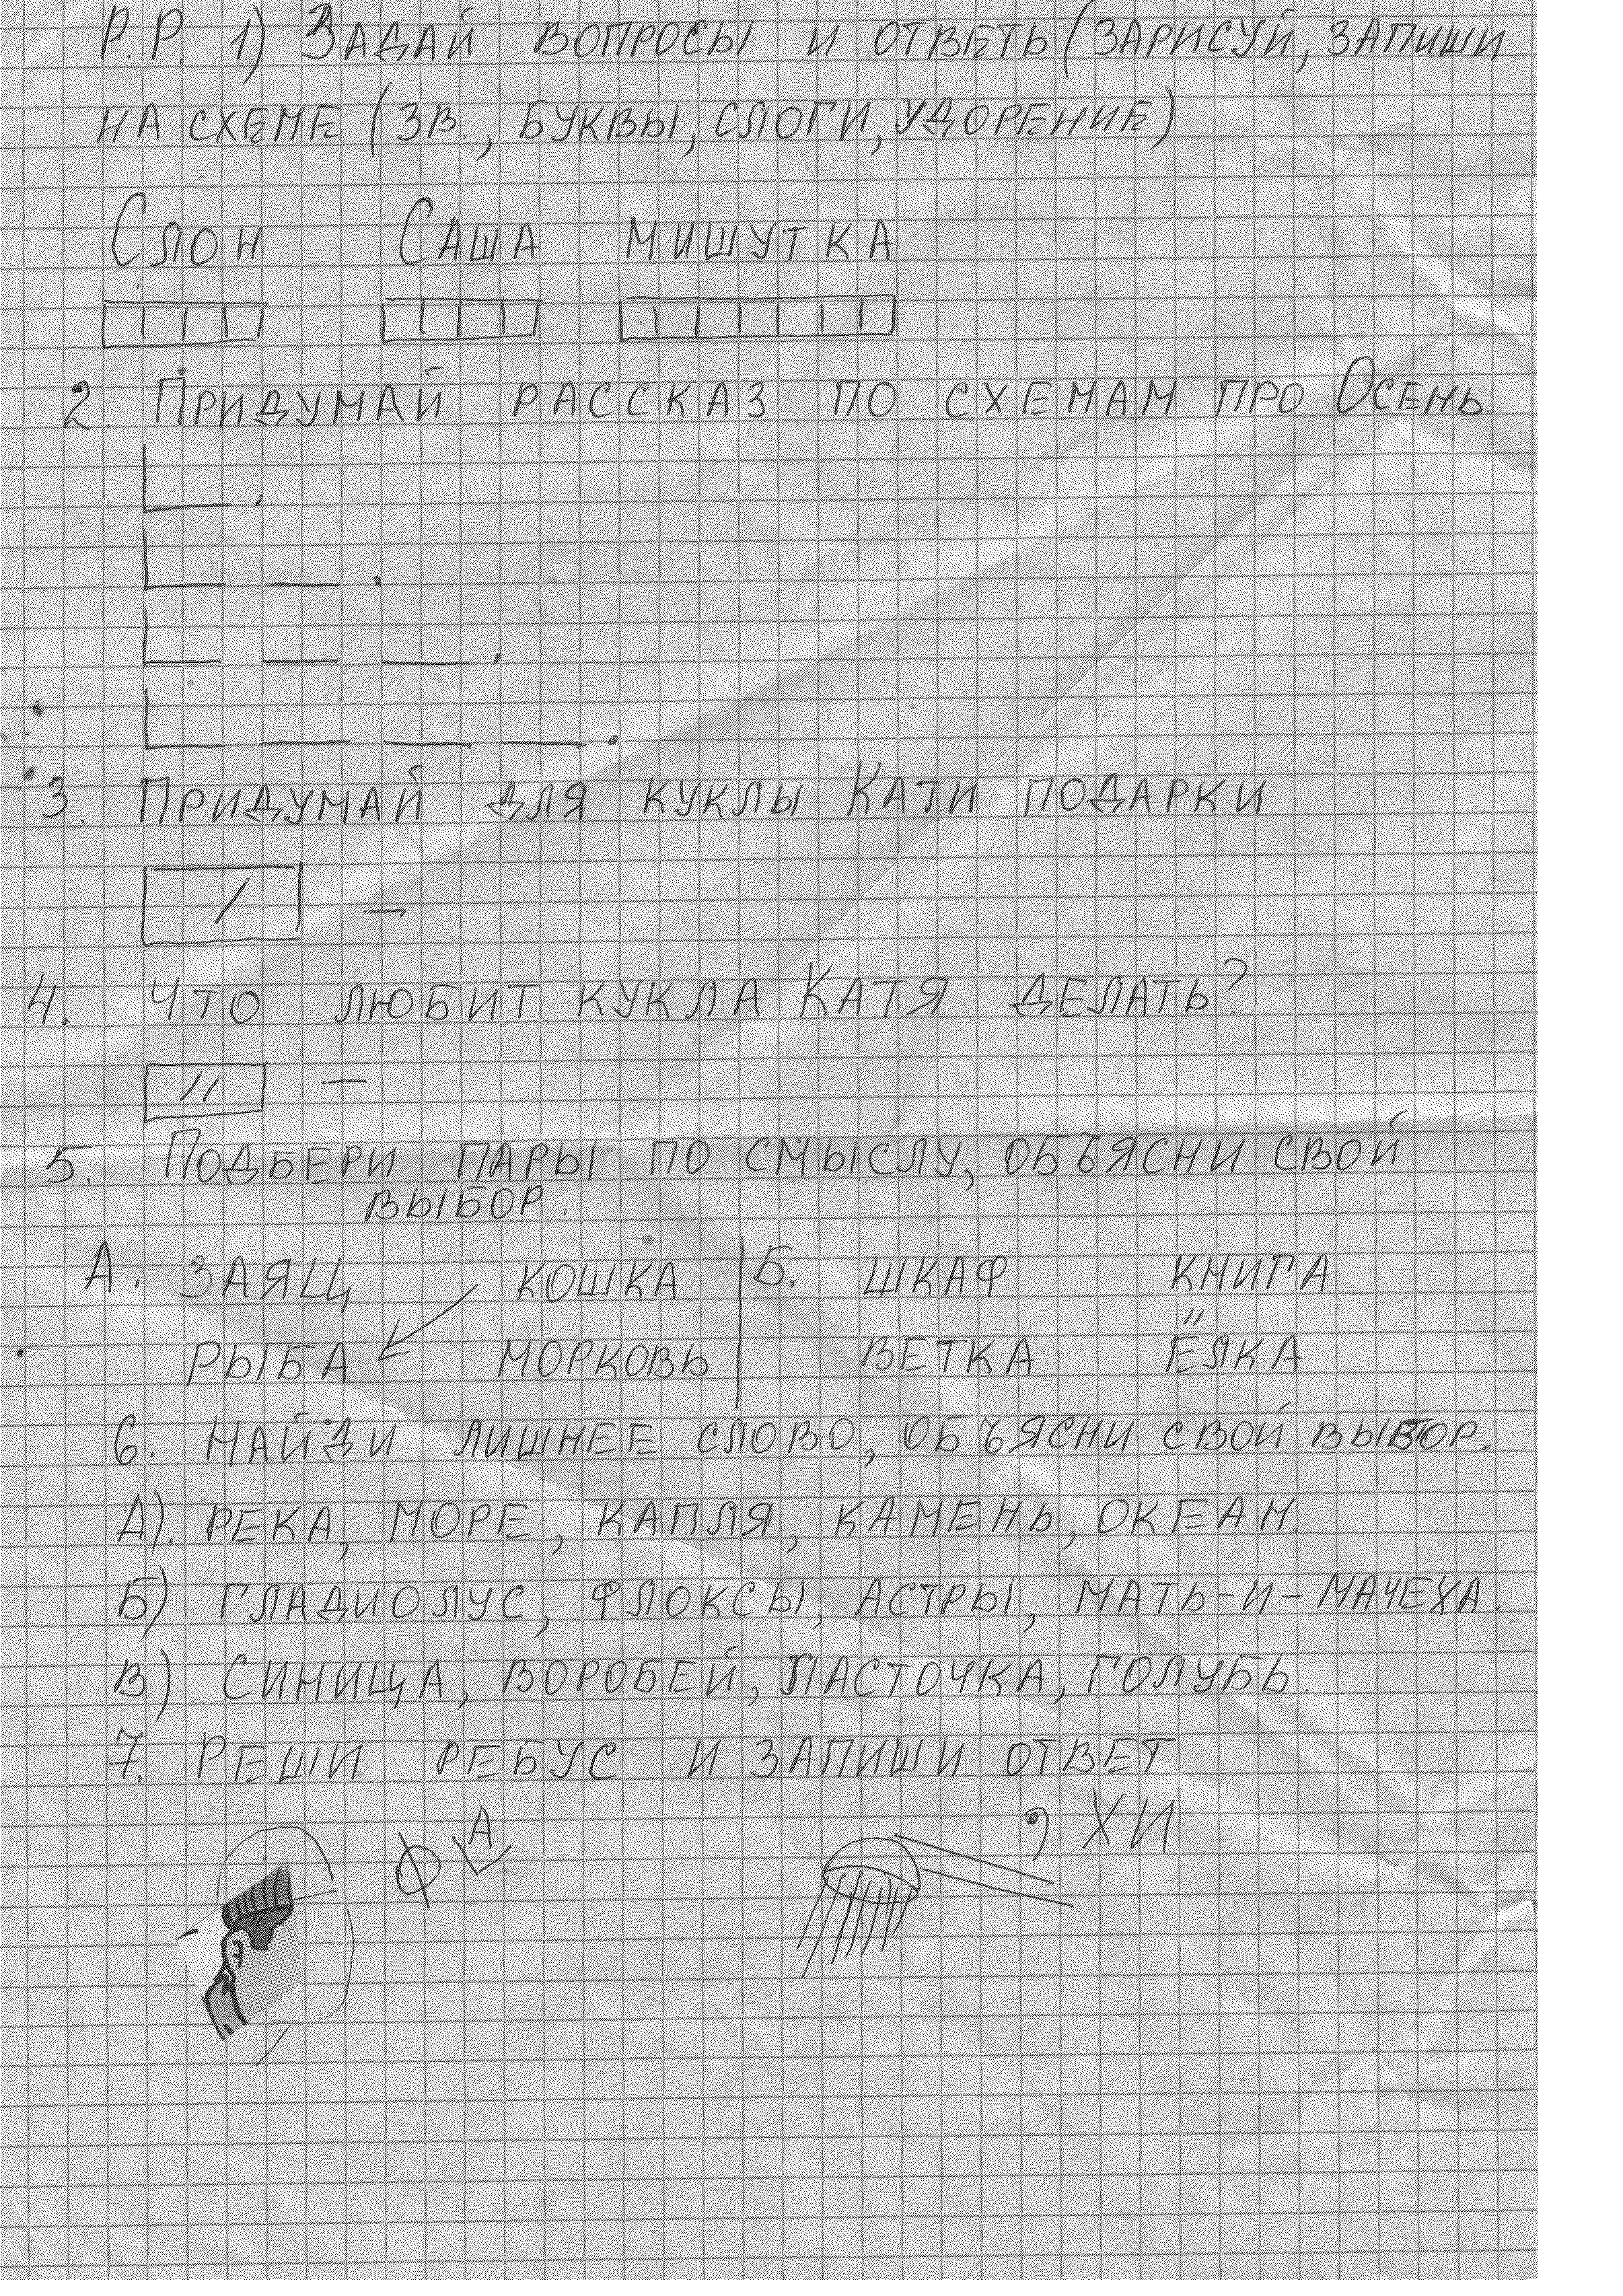 Р.Р. 1) Задай вопросы и ответь (зарисуй, запиши
на схеме (зв., буквы, слоги, удорение)
Слон Саша мишутка
2. Придумай рассказ по схемам про Осень.
3. Придумай для куклы Кати подарки
/ –
4. Что любит кукла Катя делать?
// –
5. Подбери пары по смыслу, объясни свой
выбор.
А. заяц кошка Б. шкаф книга
рыба морковь ветка ёлка
6. Найди лишнее слово, объясни свой выбор.
А). река, море, капля, камень, океан.
Б) гладиолус, флоксы, астры, мать-и-мачеха.
В) Синица, воробей, ласточка, голубь.
7. Реши ребус и запиши ответ
Ф А , ХИ